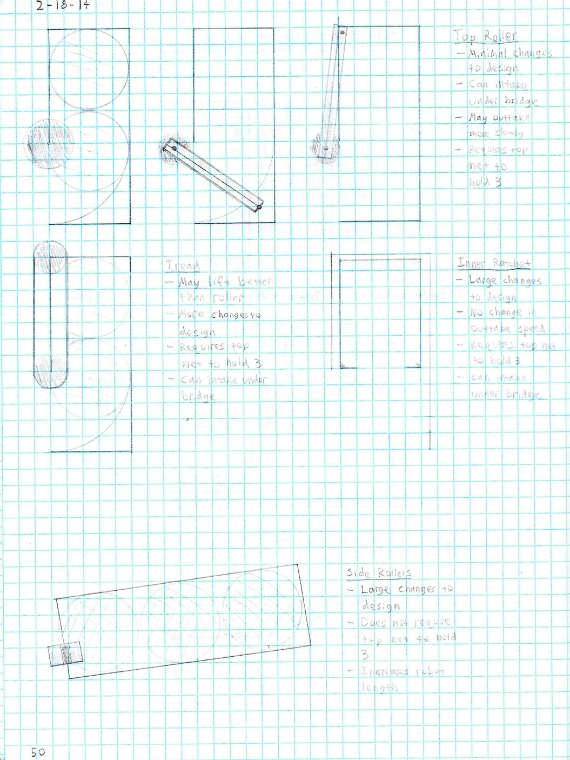 2-18-14
Top Roller
- Minimal changes
to design
- Can intake
under bridge
- May outtake
more slowly
- Requires top
net to
hold 3
Tread
- May lift better
than roller
- More changes to
design
- Requires top
net to hold 3
- Can intake under
bridge
Inner Ratchet
- Large changes
to design
- No change in
outtake speed
- Requires top net
to hold 3
- Can intake
under bridge
Side Rollers
- Large changes to
design
- Does not require
top net to hold
3
- Increases robot
length
50